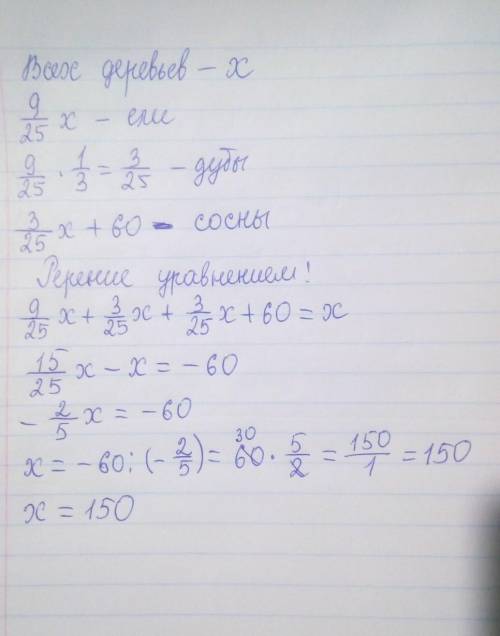 Всех деревьев – x
9/25 x – ели
9/25 · 1/3 = 3/25 – дубы
3/25 x + 60 – сосны
Решение уравнением!
9/25 x + 3/25 x + 3/25 x + 60 = x
15/25 x – x = –60
– 2/5 x = –60
x = –60 : (– 2/5) = 60 30 · 5/2 = 150/1 = 150
x = 150